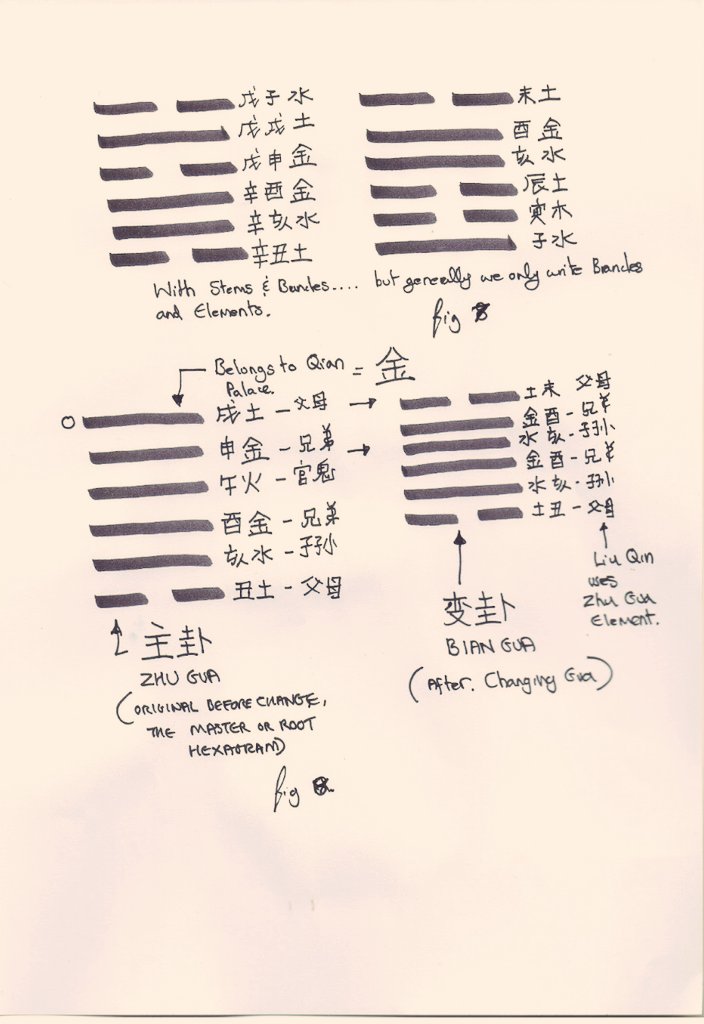 戊子水
戊戌土
戊申金
辛酉金
辛亥水
辛丑土
未土
酉金
亥水
辰土
寅木
子水
With Stems & Branches....
and Elements.
but generally we only write Branches
fig
Belongs to Qian
Palace.
= 金
戌土 - 父母
申金 - 兄弟
午火 - 官鬼
酉金 - 兄弟
亥水 - 子孙
丑土 - 父母
土未 父母
金酉 - 兄弟
水亥 - 子孙
金酉 - 兄弟
水亥 - 子孙
土丑 - 父母
主卦
ZHU GUA
(ORIGINAL BEFORE CHANGE,
THE MASTER OR ROOT
HEXAGRAM)
变卦
BIAN GUA
(After. Changing Gua)
Liu Qin
uses
Zhu Gua
Element.
fig